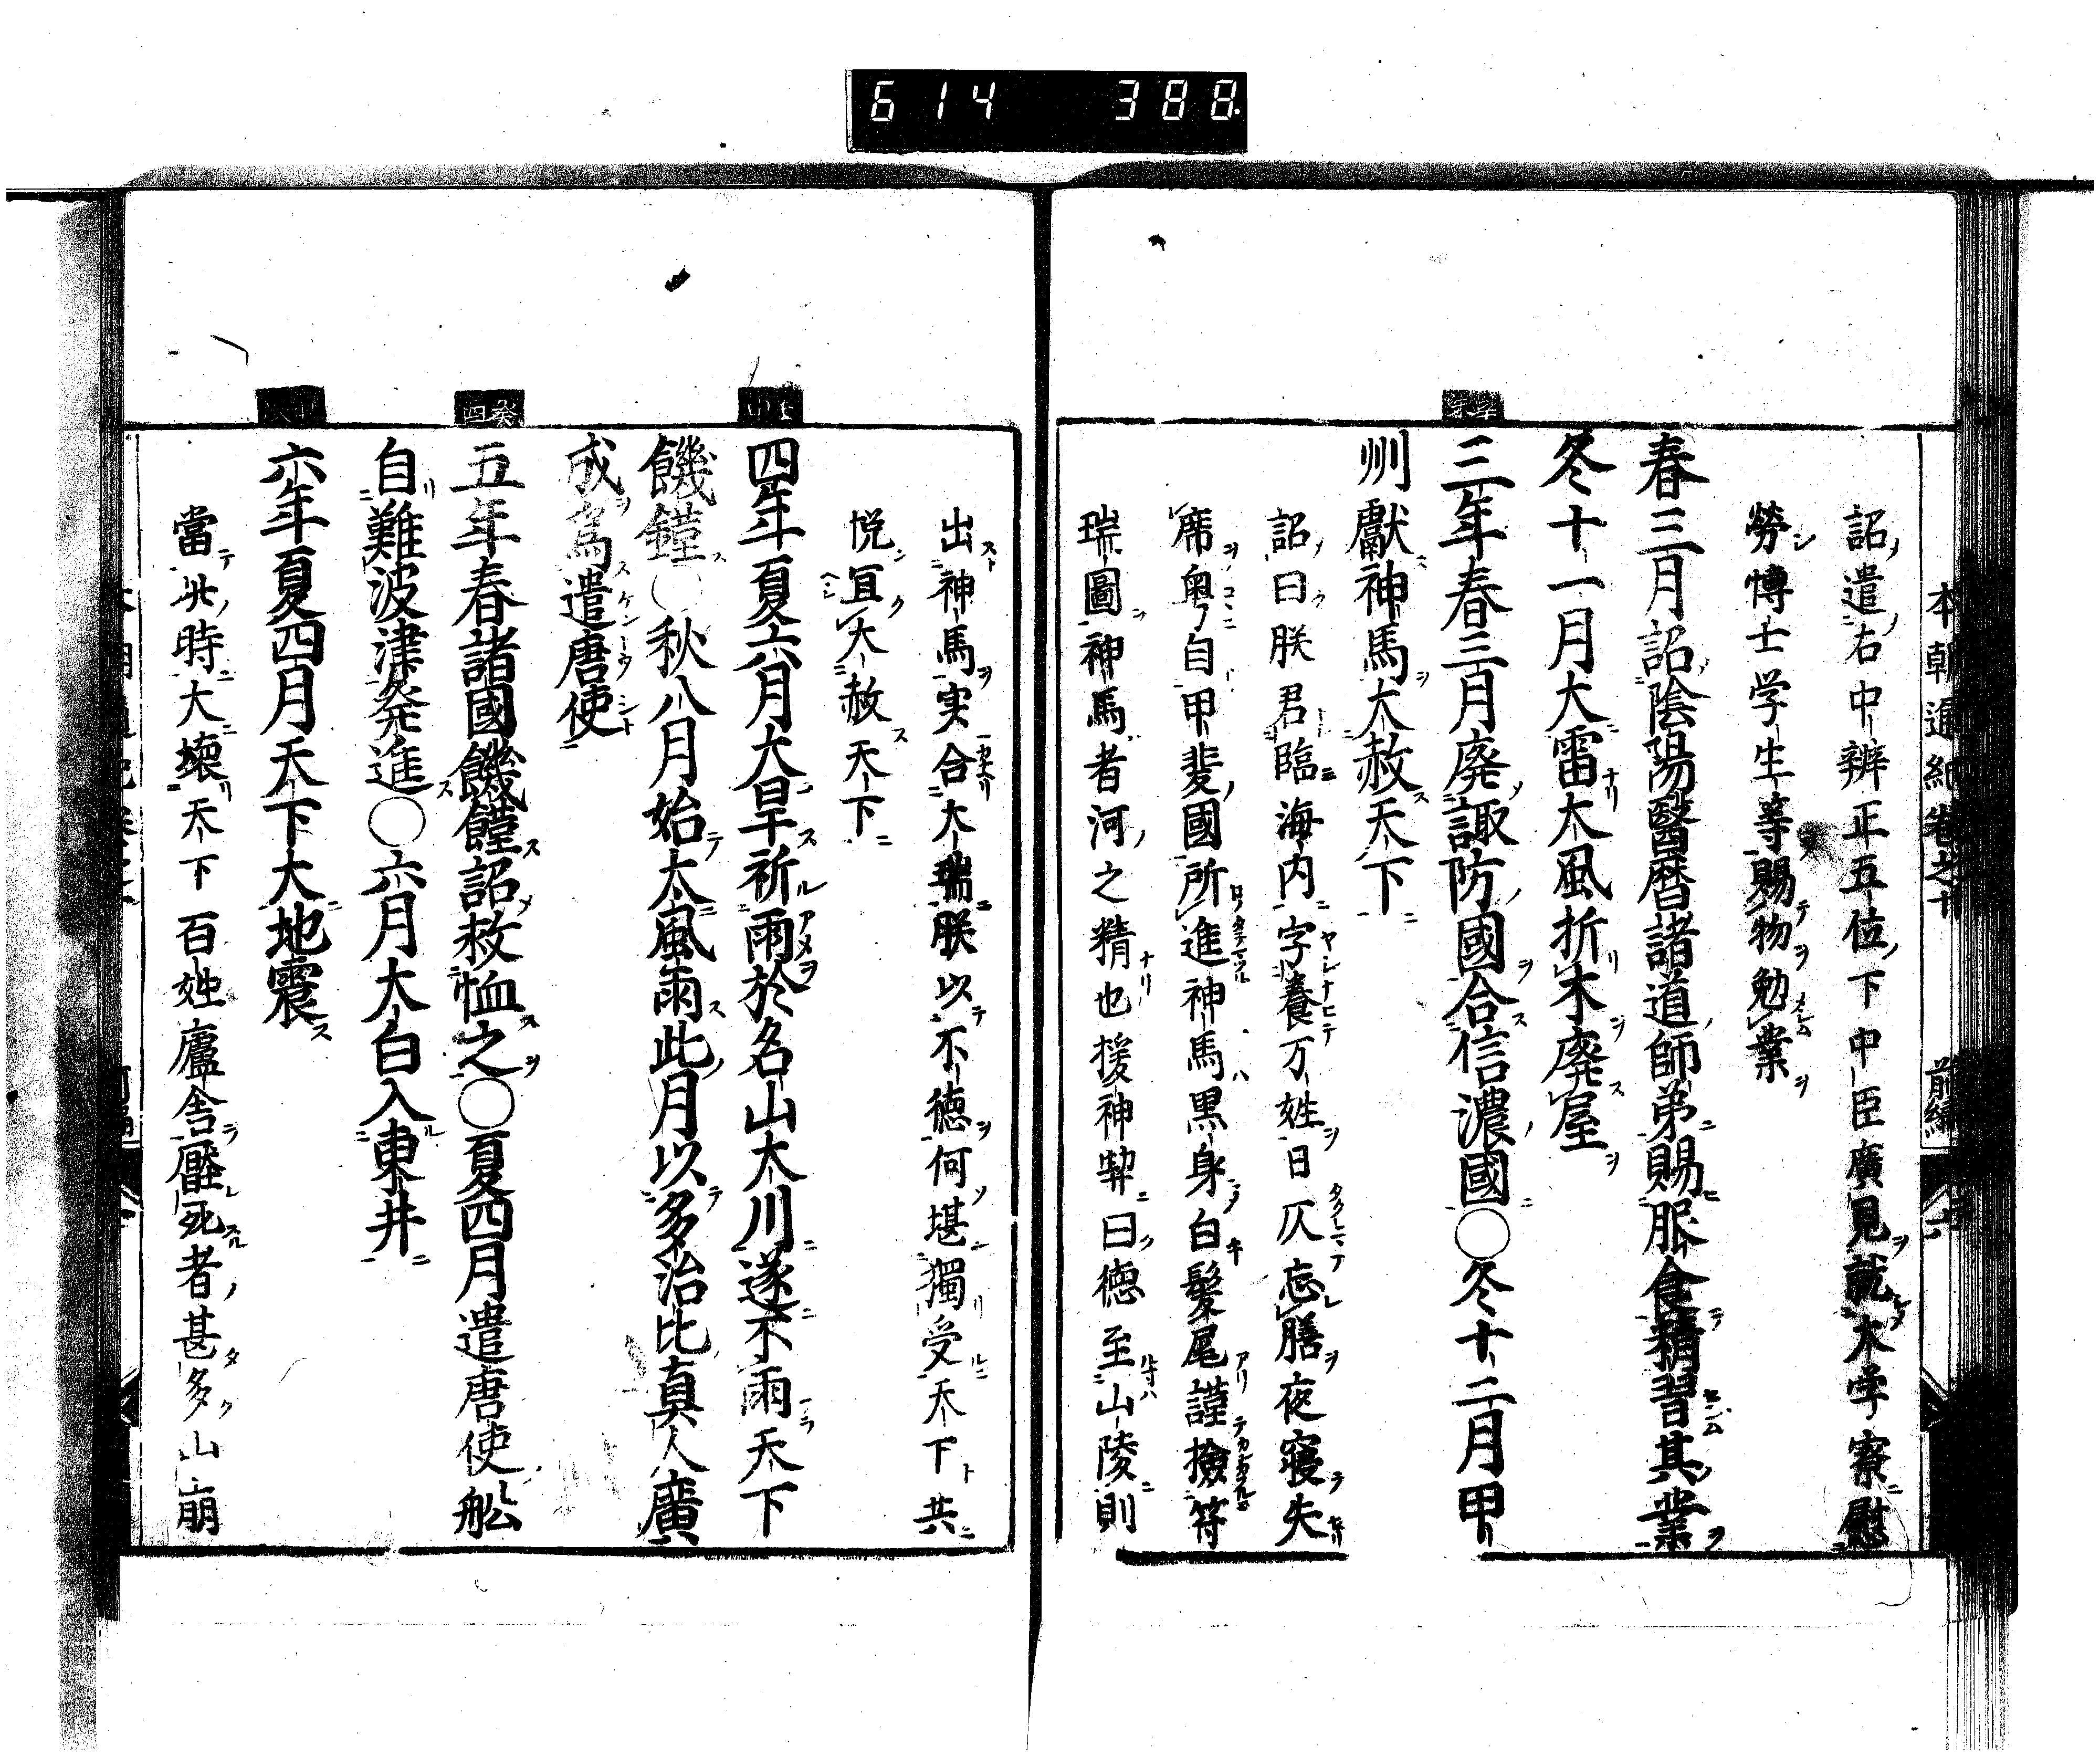 614 388
本朝通紀卷之十 前編
詔遣右中辨正五位下中臣廣見就大学寮慰
勞博士学生等賜物勉業
春三月詔陰陽醫曆諸道師弟賜服食精習其業
冬十一月大雷大風折木廃屋
三年春三月廃諏防國合信濃國○冬十二月甲
州獻神馬大赦天下
詔曰朕君臨海内字養万姓日仄忘膳夜寝失
席粤自甲斐國所進神馬黒身白髮尾謹撿符
瑞圖神馬者河之精也援神契曰徳至山陵則
出神馬実合大瑞朕以不徳何堪獨受天下共
悦宜大赦天下
四年夏六月大旱祈雨於名山大川遂不雨天下
饑饉○秋八月始大風雨此月以多治比真人廣
成為遣唐使
五年春諸國饑饉詔救恤之○夏四月遣唐使舩
自難波津発進○六月太白入東井
六年夏四月天下大地震
當此時大壊天下百姓廬舎壓死者甚多山崩